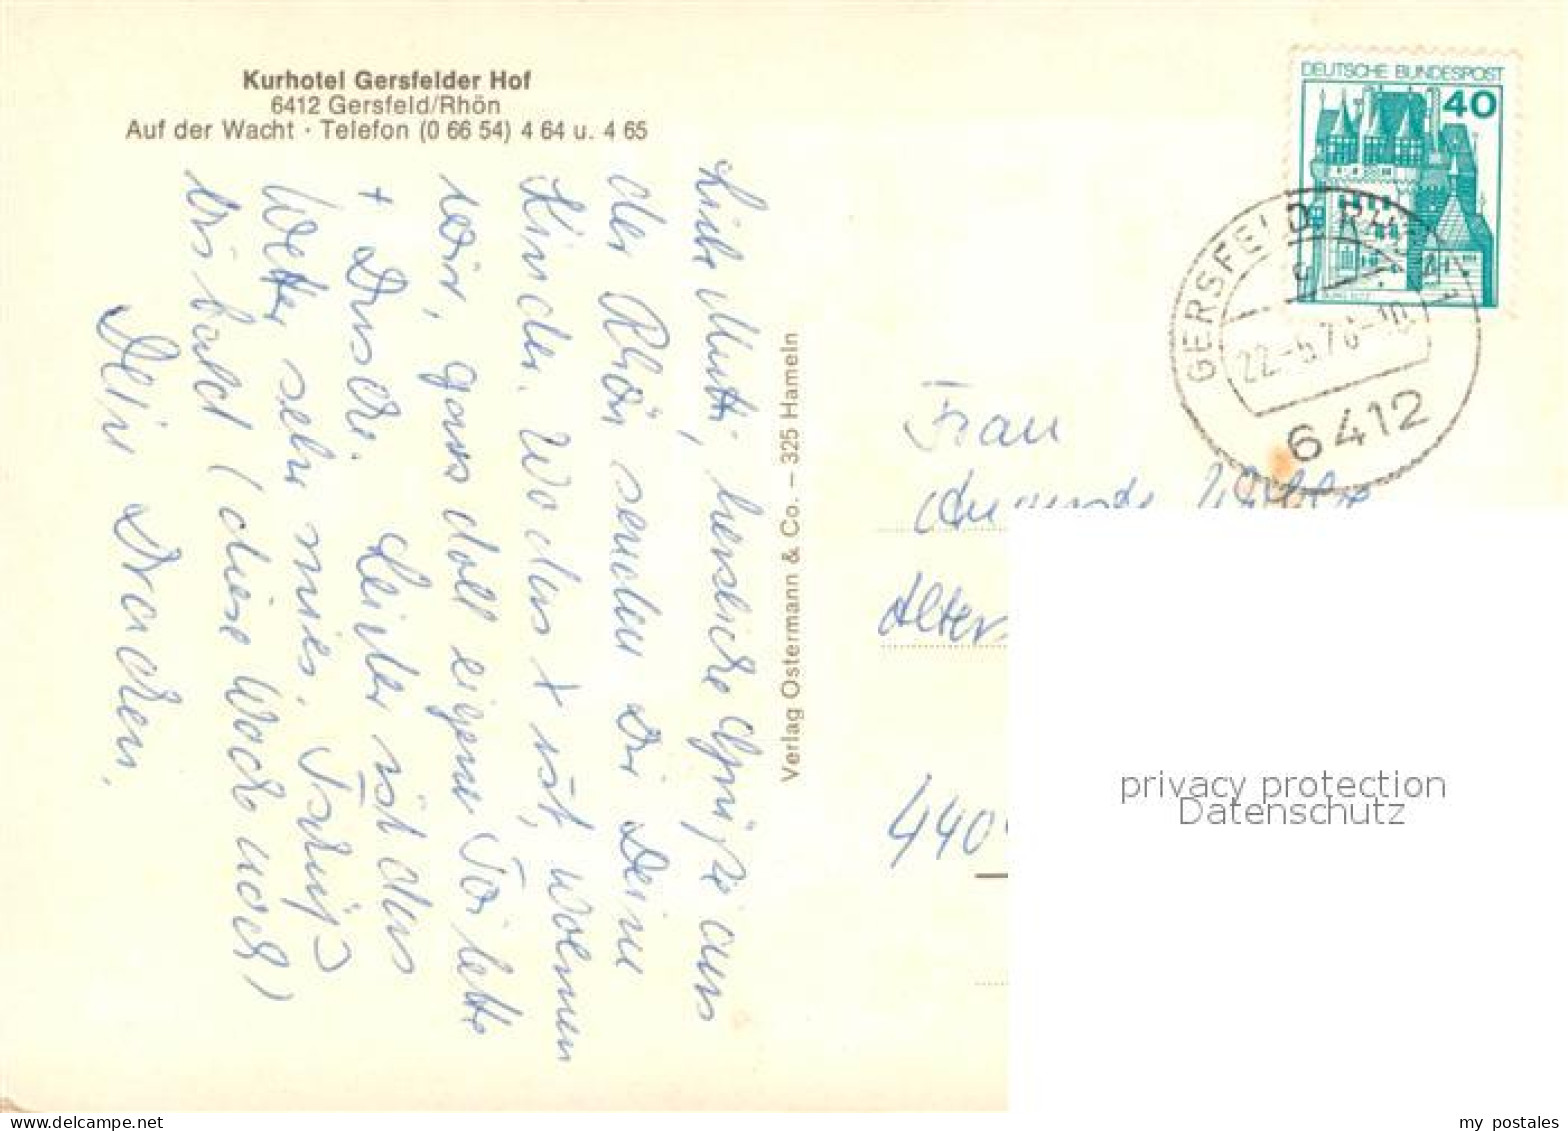 Kurhotel Gersfelder Hof
6412 Gersfeld/Rhön
Auf der Wacht · Telefon (0 66 54) 4 64 u. 4 65
Liebe Mutti, herzliche Grüße aus
der Rhön senden Dir Deine
Kinder. Wo das x ist, wohnen
wir, ganz doll eigene Toilette
+ Dusche. Leider ist das
Wetter sehr mies. Tschüß
bis bald (diese Woche noch)
Dein
Verlag Ostermann & Co. – 325 Hameln
DEUTSCHE BUNDESPOST
40
GERSFELD
6412
Frau
Alter
440
privacy protection
Datenschutz
my postales